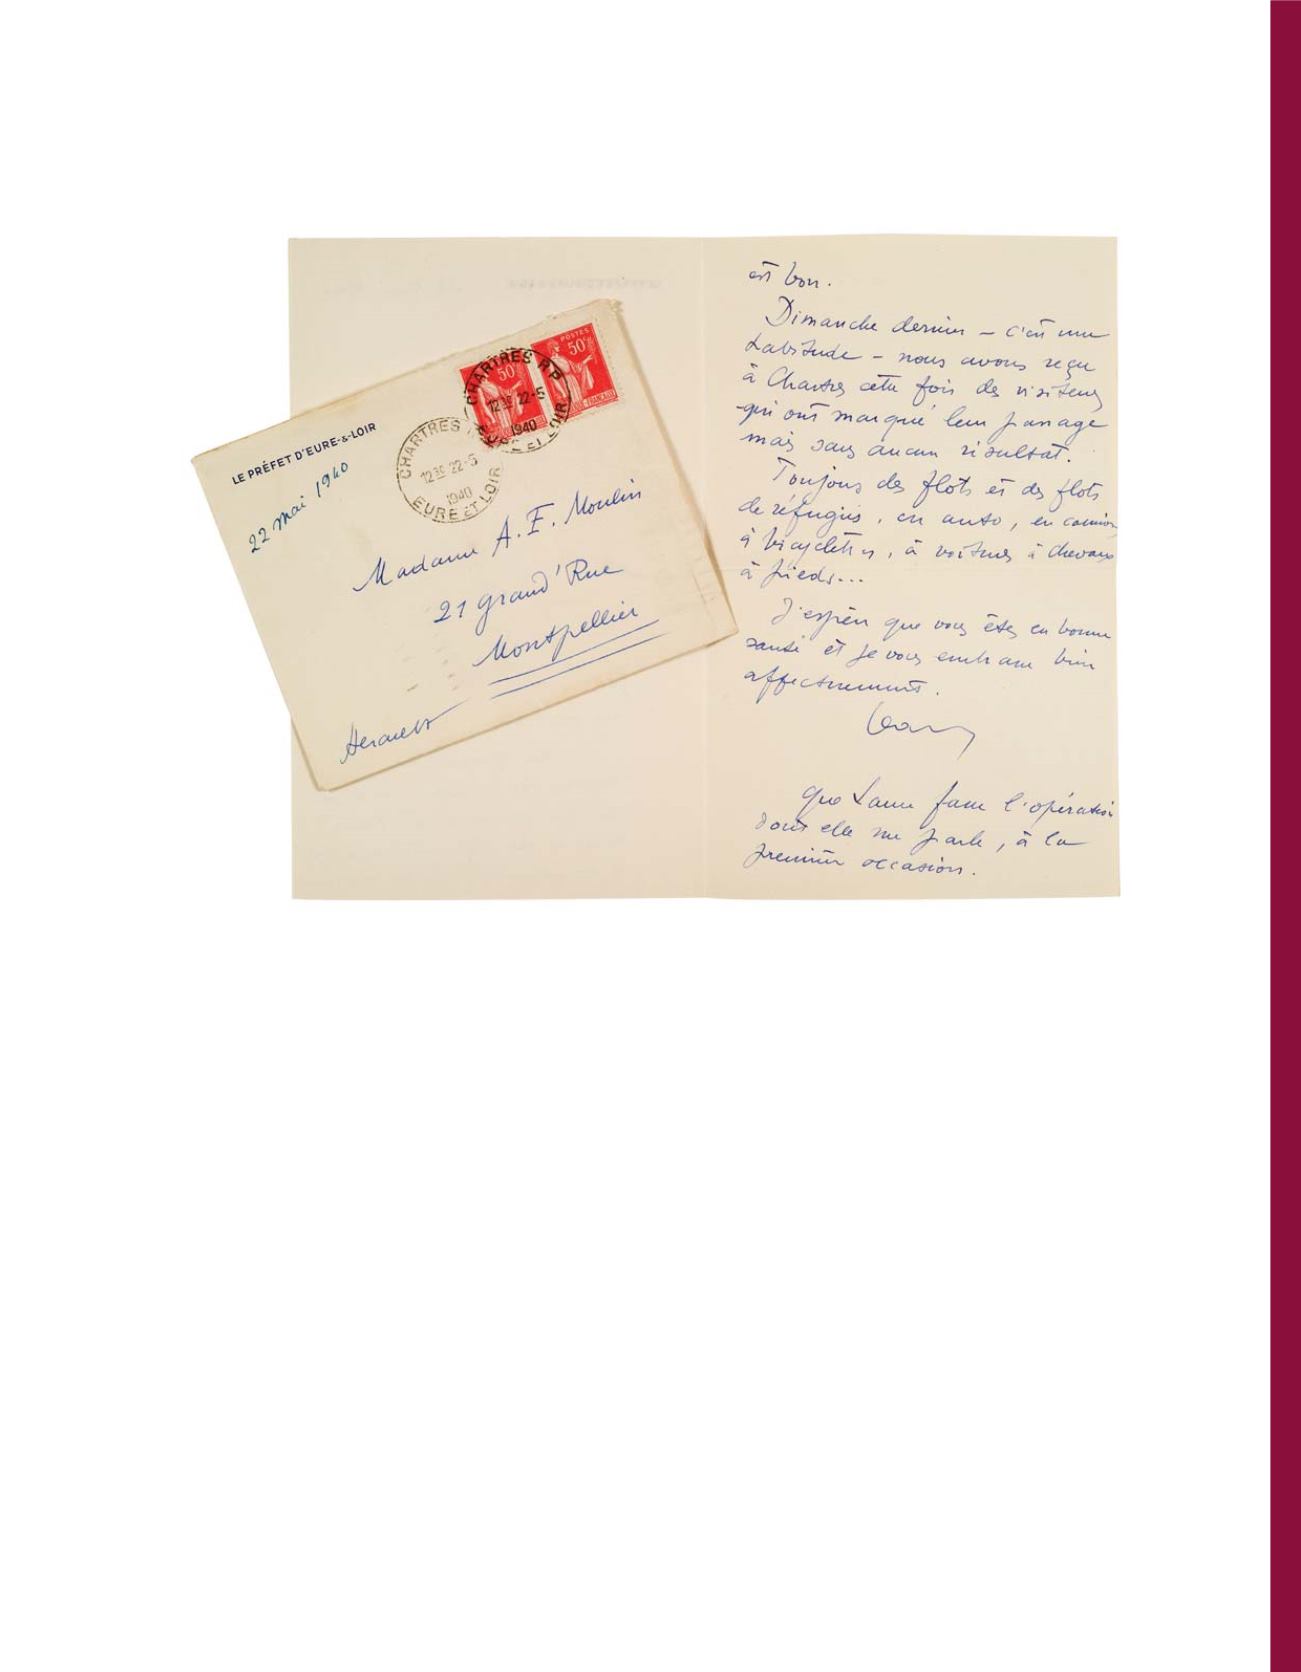 LE PRÉFET D'EURE-&-LOIR
22 mai 1940
CHARTRES
12 30 22-5
1940
EURE ET LOIR
CHARTRES R.P.
12 30 22-5
1940
EURE ET LOIR
50c
POSTES
50c
Madame A. F. Moulin
21 grand'Rue
Montpellier
Herault
est bon.
Dimanche dernier – c'est une
habitude – nous avons reçu
à Chartres cette fois des visiteurs
qui ont marqué leur passage
mais sans aucun résultat.
Toujours des flots et des flots
de réfugiés, en auto, en camion,
à bicyclettes, à voitures à chevaux
à pieds...
J'espère que vous êtes en bonne
santé et je vous embrasse bien
affectueusement.
Jean
Que Laure fasse l'opération
dont elle me parle, à la
première occasion.